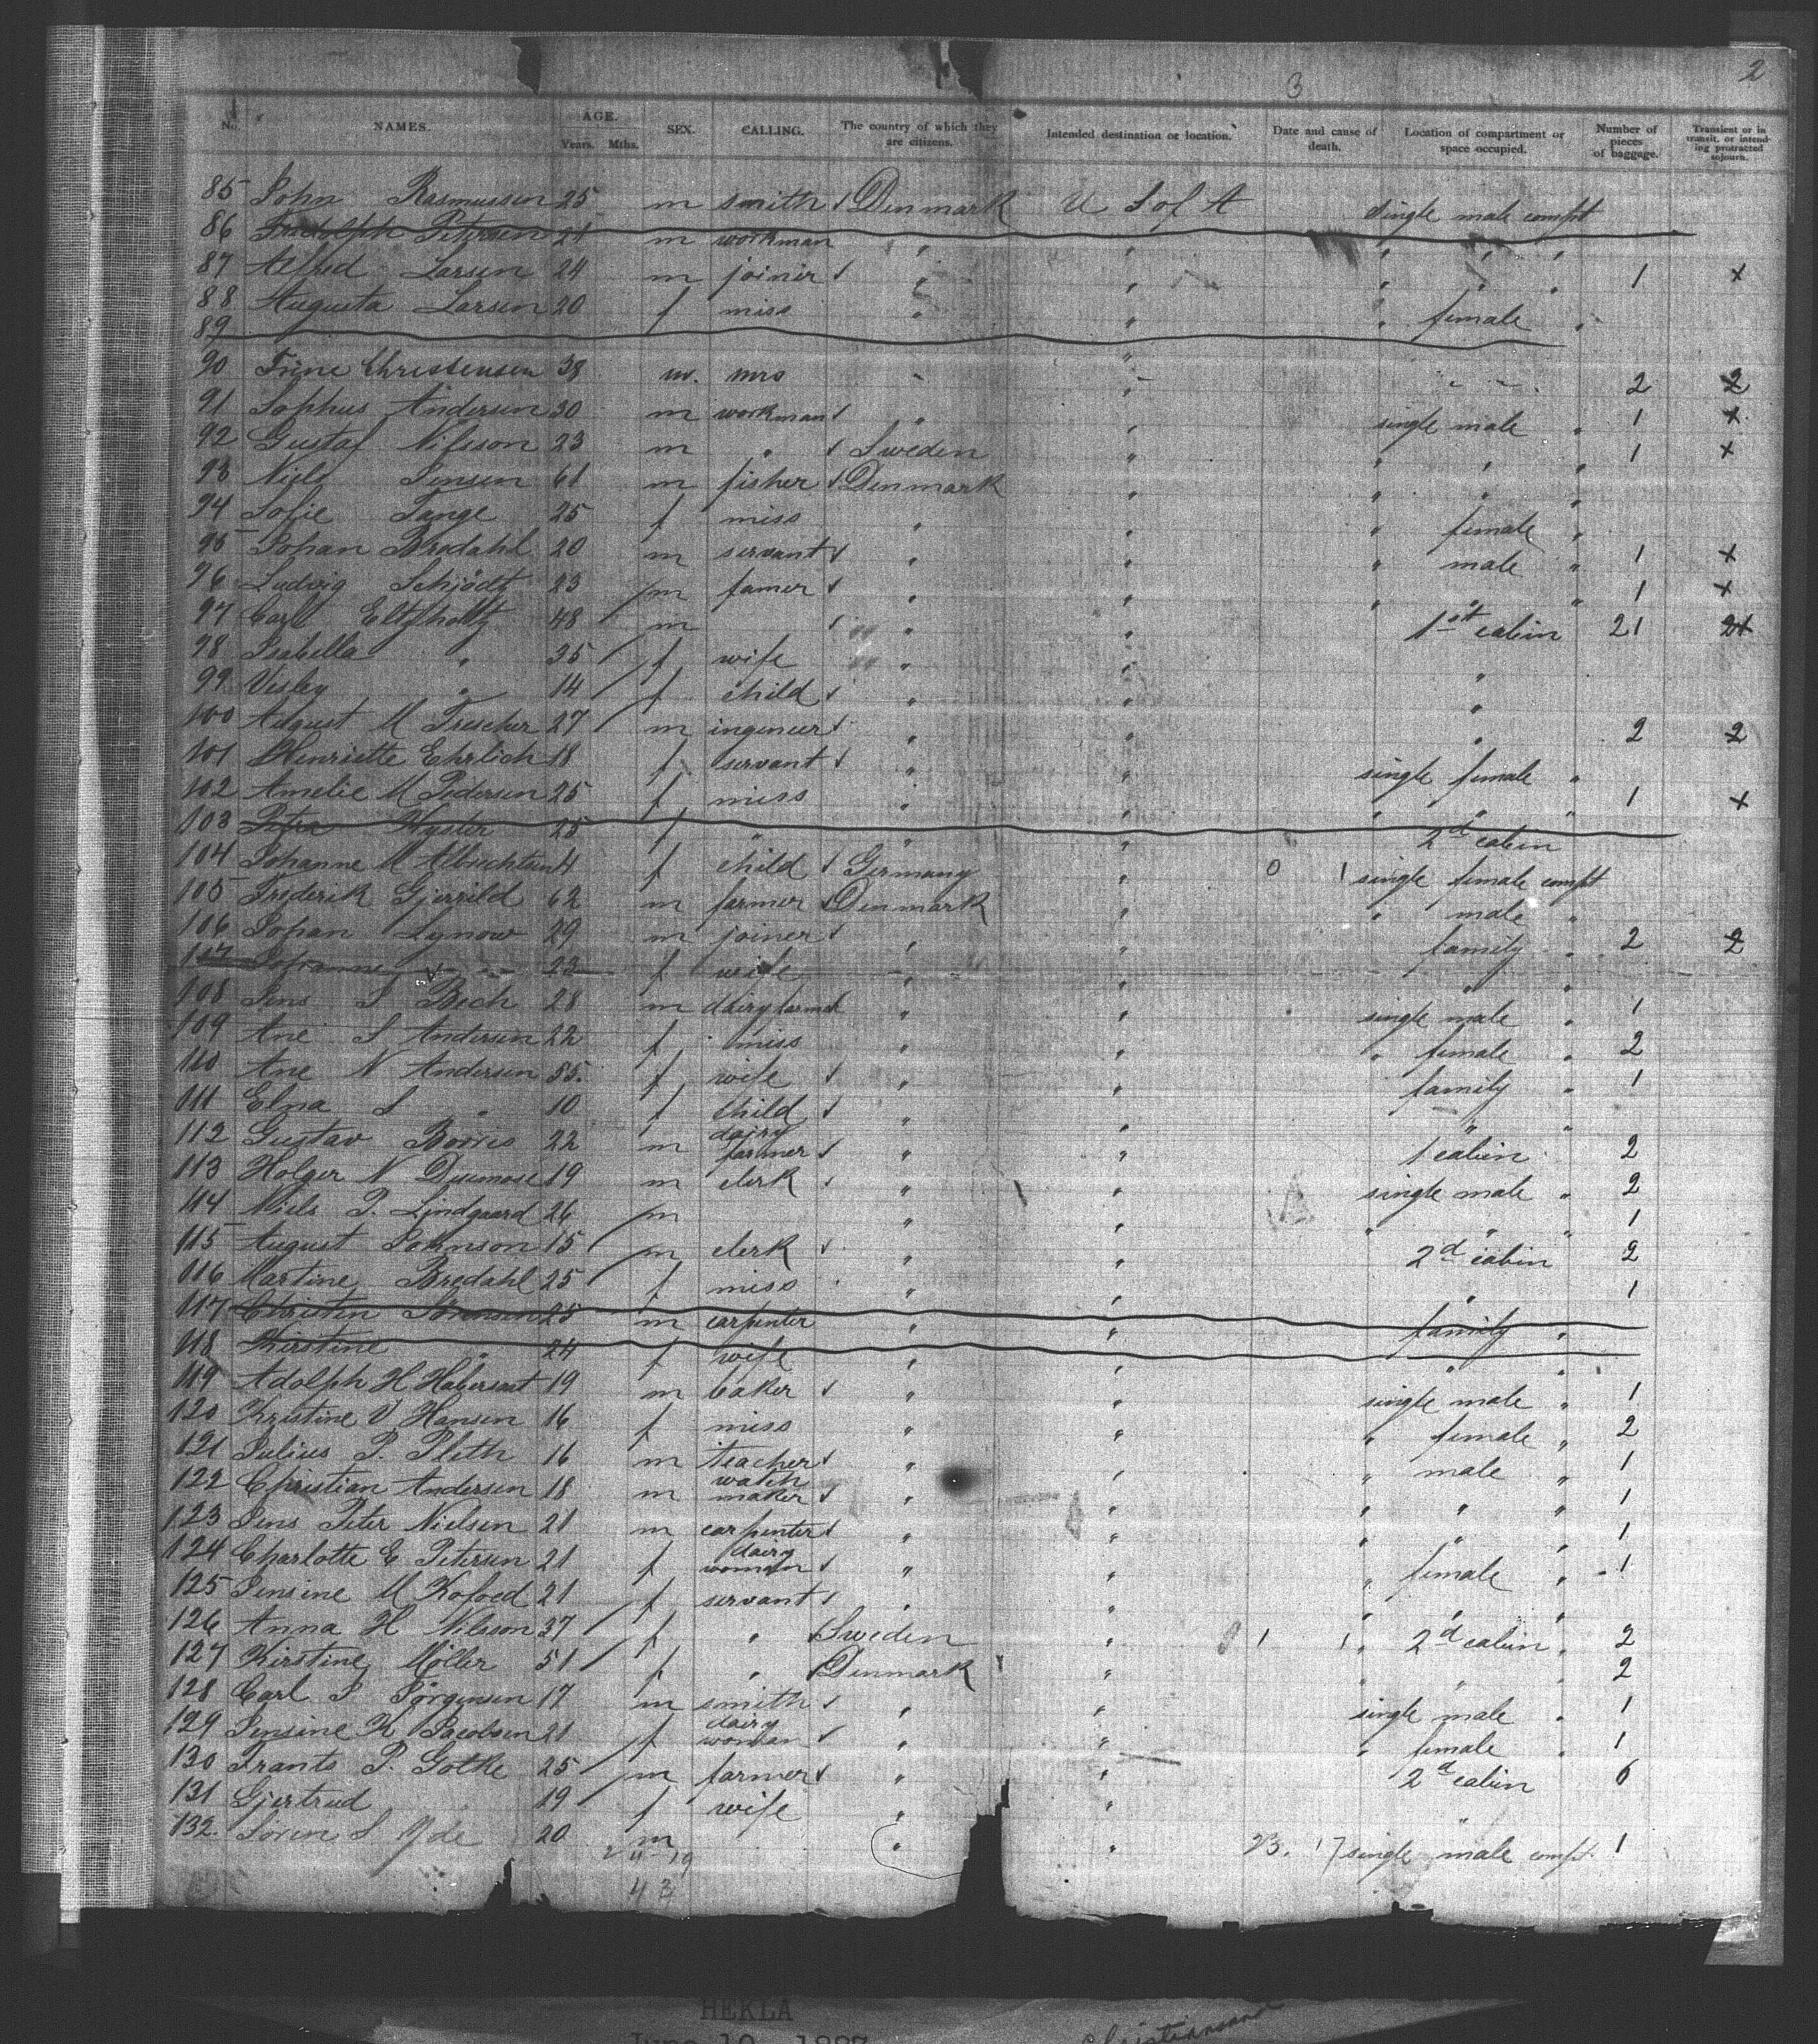 3
2
No. NAMES. AGE. Years. Mths. SEX. CALLING. The country of which they are citizens. Intended destination or location. Date and cause of death. Location of compartment or space occupied. Number of pieces of baggage. Transient or in transit, or intending protracted sojourn.
85 John Rasmussen 25 m smith Denmark U S of A single male compt
86 Petersen 21 m workman " " " " "
87 Alfred Larsen 24 m joiner " " " " " 1 x
88 Augusta Larsen 20 f miss " " " female "
89 "
90 Trine Christensen 38 mrs " " " " 2 2
91 Sophus Andersen 30 m workman " " single male " 1 x
92 Gustaf Nilsson 23 m " Sweden " " " " 1 x
93 Niels Jensen 61 m fisher Denmark " " " "
94 Sofie Tange 25 f miss " " " female "
95 Johan Bredahl 20 m servant " " " male " 1 x
96 Ludvig Schjödtz 23 m famer " " " " " 1 x
97 Carl Eltzholtz 48 m " " 1st cabin 21
98 Isabella " 35 f wife " " "
99 Vesley " 14 f child " " "
100 August M Trescher 27 m ingeneer " " " 2 2
101 Henriette Ehrlich 18 f servant " " single female "
102 Amelie M Pedersen 25 f miss " " " " " 1 x
103 Petra Kyster 25 f " " " 2d cabin
104 Johanne M Albrechtsen 4 f child Germany " 0 1 single female compt
105 Frederik Gjerrild 62 m farmer Denmark " " male "
106 Johan Lynow 29 m joiner " " family " 2 2
107 Johanne " 22 f wife " " " "
108 Jens J Bech 28 m dairy farmer " " single male " 1
109 Ane S Andersen 22 f miss " " " female " 2
110 Ane N Andersen 55. f wife " " family " 1
111 Elna S " 10 f child " " " "
112 Gustav Borris 22 m dairy farmer " " 1 cabin 2
113 Holger N 19 m clerk " " single male " 2
114 Niels P. Lindgaard 26 m " " " " " 1
115 August Johnson 15 m clerk " " 2d cabin 2
116 Martine Bredahl 25 f miss " " " 1
117 Christen Sörensen 25 m carpenter " " family "
118 Kirstine " 24 f wife " " " "
119 Adolph H Habersaat 19 m baker " " single male " 1
120 Kristine V Hansen 16 f miss " " " female " 2
121 Julius P. Pleth 16 m teacher " " " male " 1
122 Christian Andersen 18 m watch maker " " " " " 1
123 Jens Peter Nielsen 21 m carpenter " " " " " 1
124 Charlotte E Petersen 21 f dairy woman " " " female " 1
125 Jensine M Kofoed 21 f servant " " " " "
126 Anna H Nilsson 37 f " Sweden " 1 1 " 2d cabin " 2
127 Kirstine Möller 51 f " Denmark " " " " 2
128 Carl J Jörgensen 17 m smith " " single male " 1
129 Jensine K Jacobsen 21 f dairy woman " " " female " 1
130 Frants P. Gotke 25 m farmer " " 2d cabin 6
131 Gjertrud 19 f wife " " "
132 Sören S Yde 20 m " " 23. 17 single male compt. 1
4 19
43
HEKLA
June 10, 1887
Christiansand